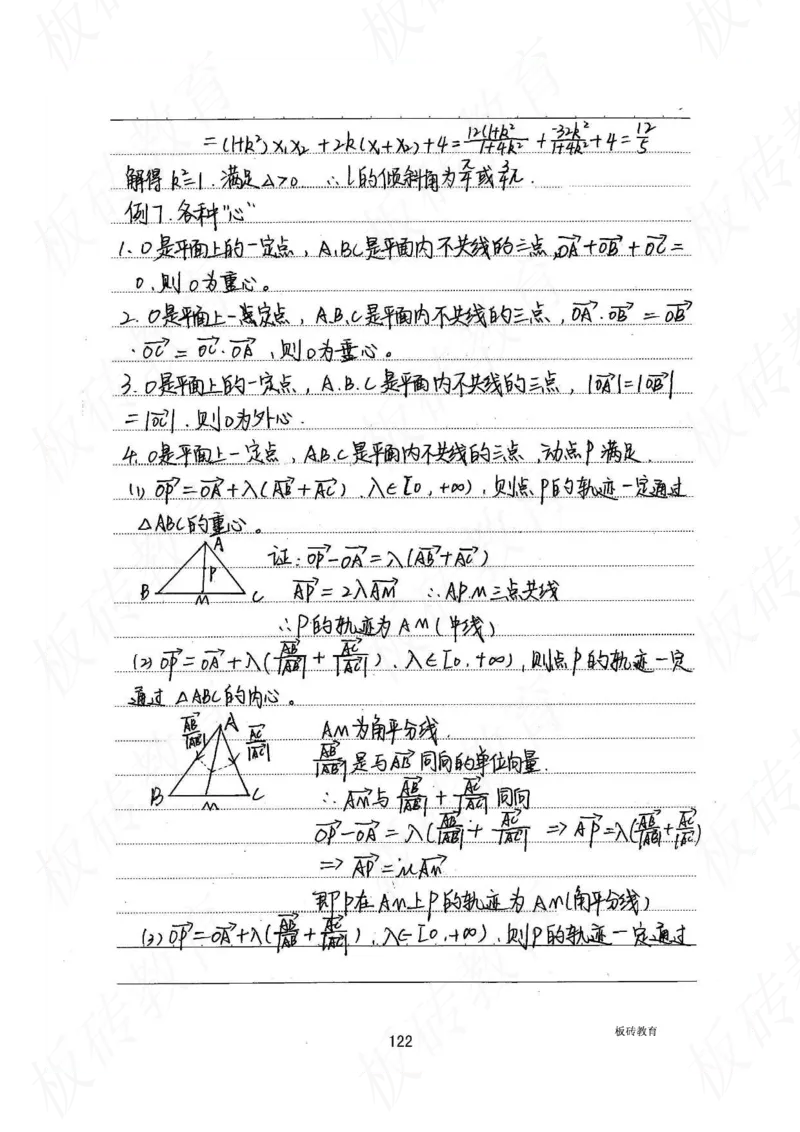 =(1+k²)x₁x₂+2k(x₁+x₂)+4=12(1+k²)/(1+4k²)+(-32k²)/(1+4k²)+4=12/5
解得k²=1.满足△>0.∴l的倾斜角为π/4或3/4π.
例7.各种"心"
1.O是平面上的一定点,A.B.C是平面内不共线的三点,OA→+OB→+OC→=
0.则O为重心。
2.O是平面上一定点,A.B.C是平面内不共线的三点,OA→·OB→=OB→
·OC→=OC→·OA→,则O为垂心。
3.O是平面上的一定点,A.B.C是平面内不共线的三点,|OA→|=|OB→|
=|OC→|.则O为外心.
4.O是平面上一定点,A.B.C是平面内不共线的三点,动点P满足.
(1)OP→=OA→+λ(AB→+AC→).λ∈[0,+∞),则点P的轨迹一定通过
△ABC的重心。
A
P
B
M
C
证:OP→-OA→=λ(AB→+AC→)
AP→=2λAM→ ∴A.P.M三点共线
∴P的轨迹为AM(中线)
(2)OP→=OA→+λ(AB→/|AB→|+AC→/|AC→|).λ∈[0,+∞),则点P的轨迹一定
通过△ABC的内心。
AB→/|AB→|
A
AC→/|AC→|
B
M
C
AM为角平分线.
AB→/|AB→|是与AB→同向的单位向量.
∴AM→与AB→/|AB→|+AC→/|AC→|同向
OP→-OA→=λ(AB→/|AB→|+AC→/|AC→|)=>AP→=λ(AB→/|AB→|+AC→/|AC→|)
=>AP→=μAM→
即P在AM上P的轨迹为AM(角平分线)
(3)OP→=OA→+λ(AB→/|AB→|+AC→/|AC→|).λ∈[0,+∞).则P的轨迹一定通过
122
板砖教育